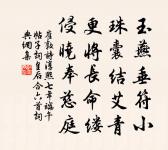 玉燕垂符小
珠囊结艾青
更将长命缕
侵晓奉慈庭
崔敦诗淳熙七年端午
帖子词皇后合六首词
典缃集